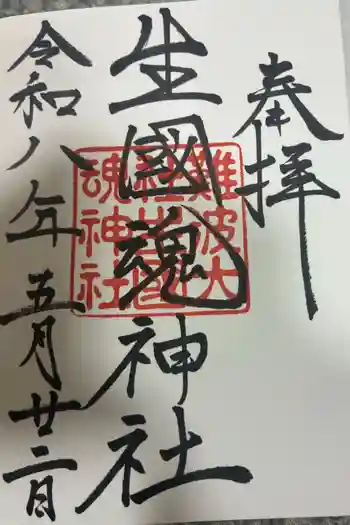 奉拝
生國魂神社
難波大社生國魂神社
令和八年五月廿二日